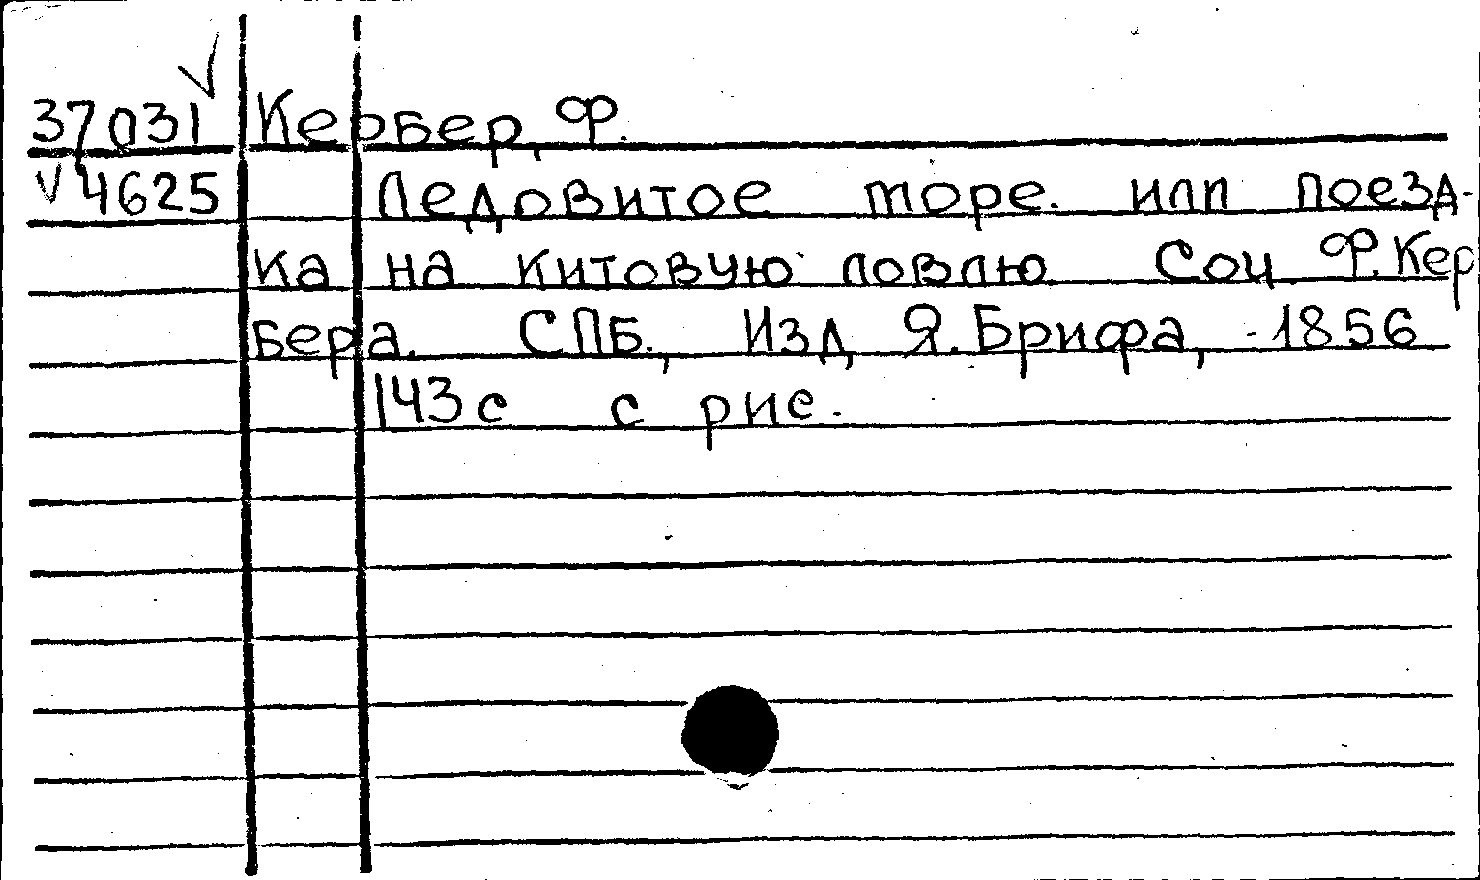 37031 Кербер, Ф.
4625 Ледовитое море. или поезд-
ка на китовую ловлю Соч Ф. Кер
бера. СПБ., Изд Я. Брифа, - 1856
143с с рис.